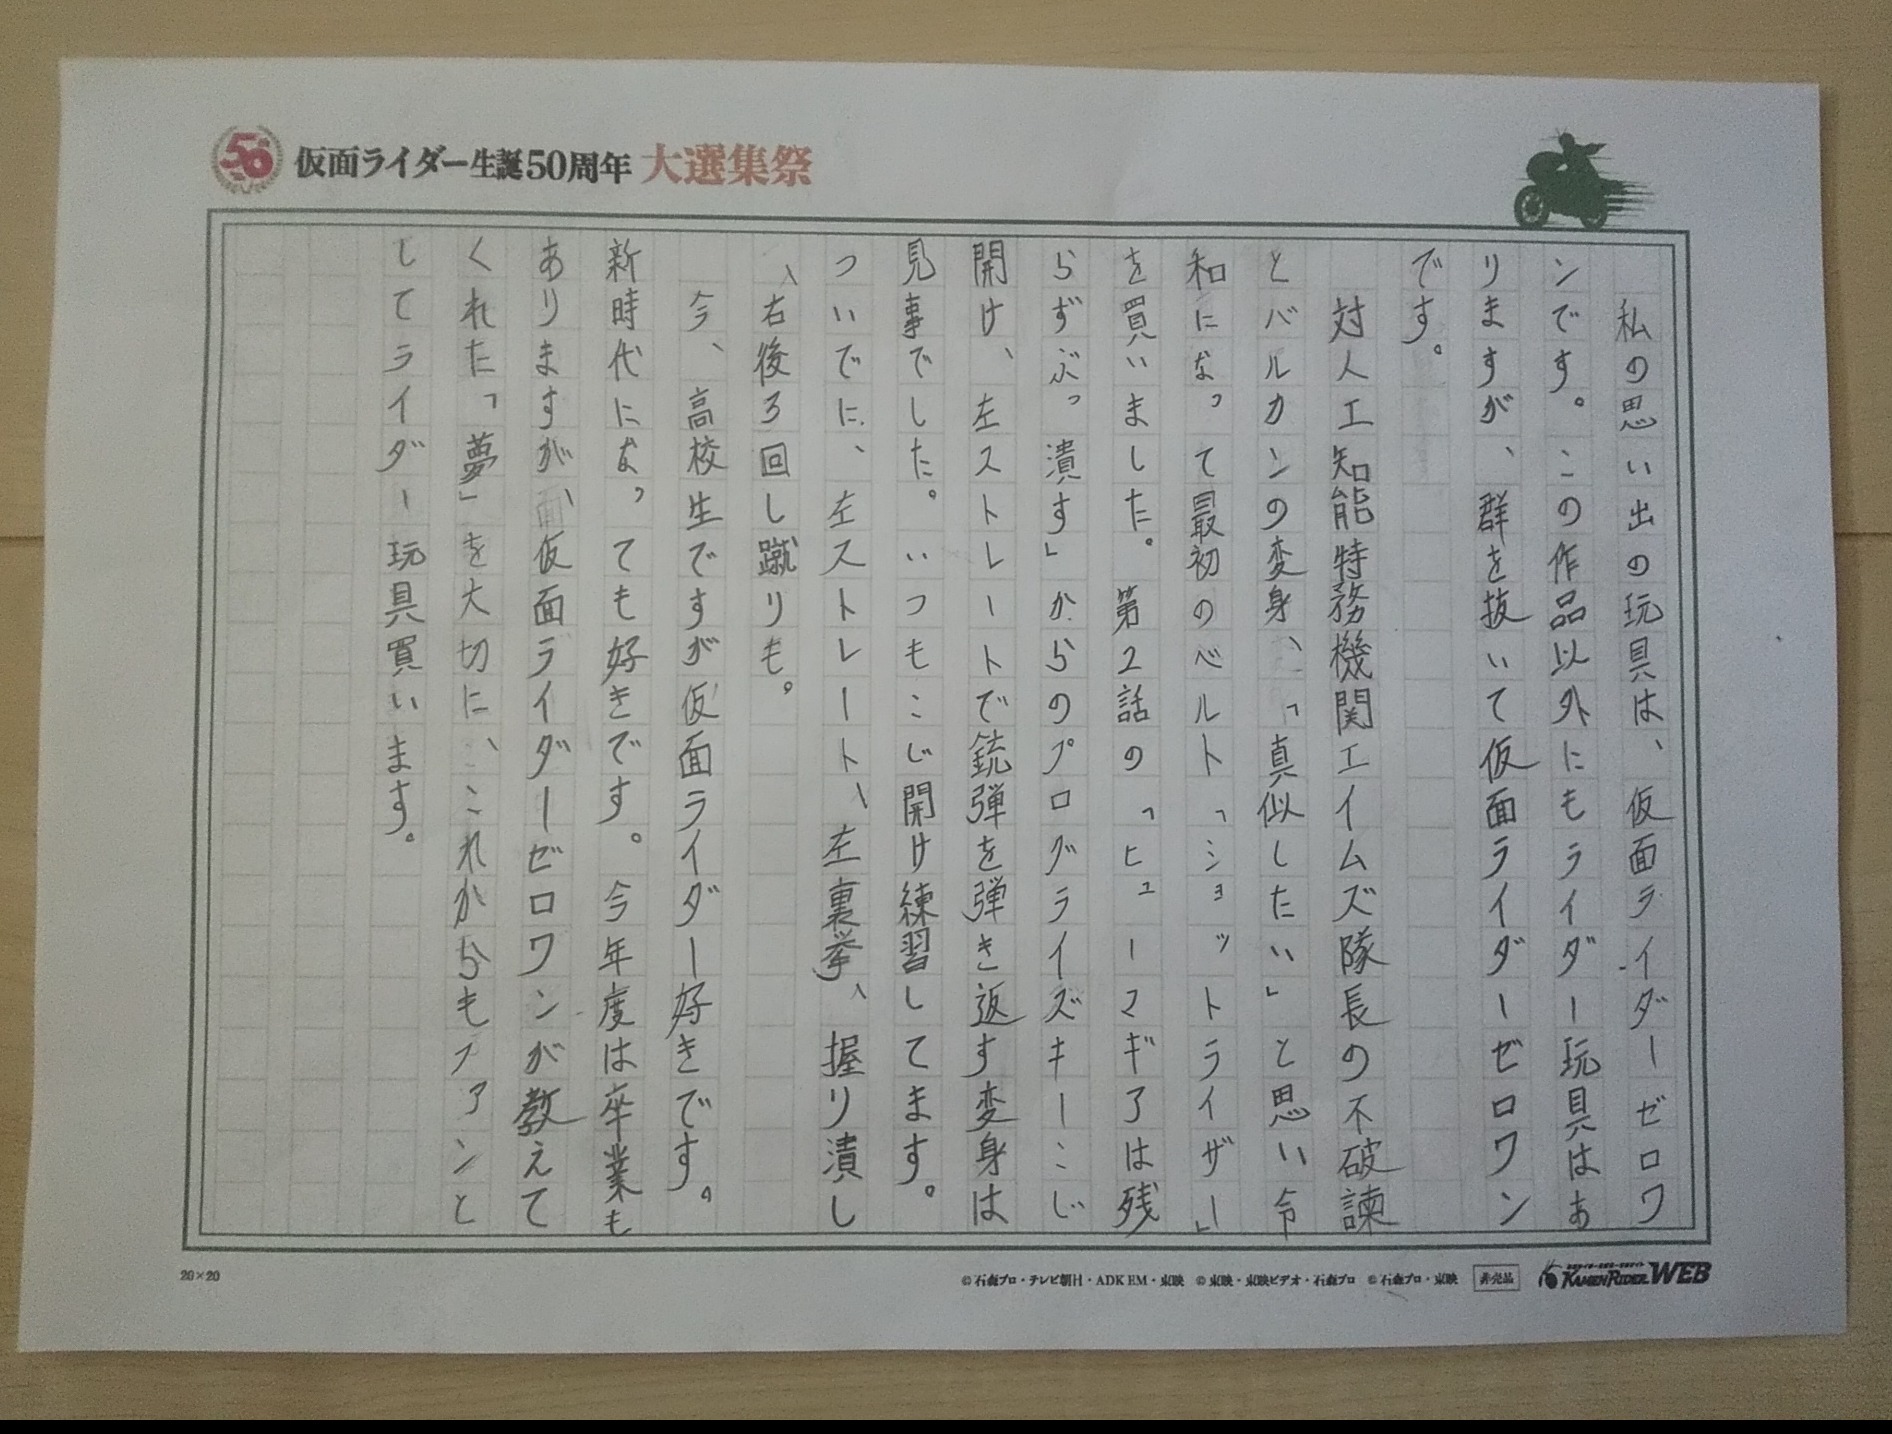 50
仮面ライダー生誕50周年 大選集祭
私の思い出の玩具は、仮面ライダーゼロワ
ンです。この作品以外にもライダー玩具はあ
りますが、群を抜いて仮面ライダーゼロワン
です。
対人工知能特務機関エイムズ隊長の不破諫
とバルカンの変身、「真似したい」と思い令
和になって最初のベルト「ショットライザー」
を買いました。第2話の「ヒューマギアは残
らずぶっ潰す」からのプログライズキーこじ
開け、左ストレートで銃弾を弾き返す変身は
見事でした。いつもこじ開け練習してます。
ついでに、左ストレート、左裏拳、握り潰し
、右後ろ回し蹴りも。
今、高校生ですが仮面ライダー好きです。
新時代になっても好きです。今年度は卒業も
ありますが、仮面ライダーゼロワンが教えて
くれた「夢」を大切に、これからもファンと
してライダー玩具買います。
20×20
©石森プロ・テレビ朝日・ADK EM・東映 ©東映・東映ビデオ・石森プロ ©石森プロ・東映
非売品
KAMEN RIDER WEB